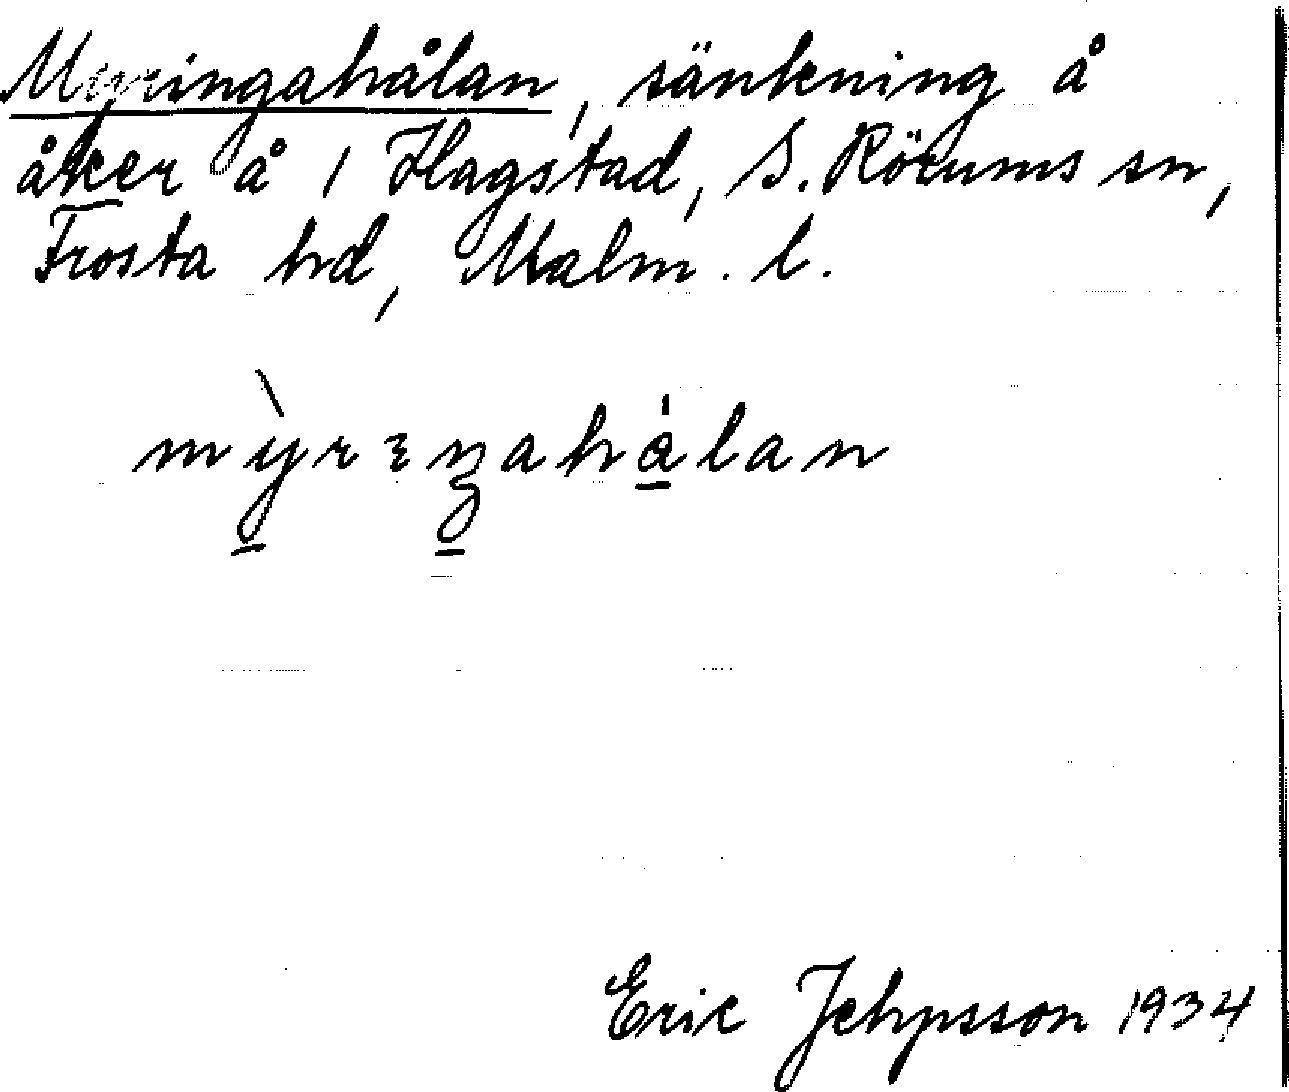 Myringahålan, sänkning å
åker å 1 Hagstad, S. Rörums sn,
Frosta hd, Malm. l.
mỳrıŋahålan
Eric Jehpsson 1934